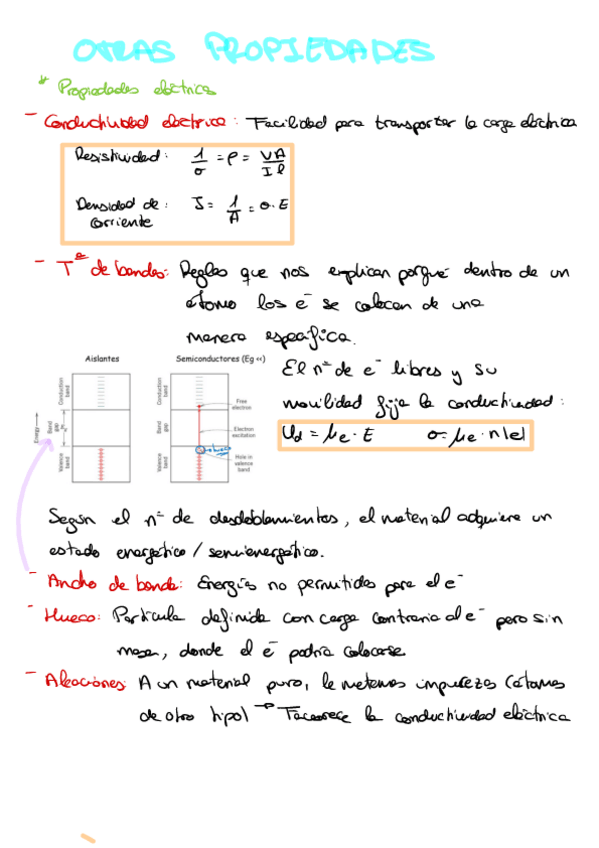 OTRAS PROPIEDADES
* Propiedades eléctricas
- Conductividad eléctrica: Facilidad para transportar la carga eléctrica
Resistividad: 1/σ = ρ = VA/Il
Densidad de corriente: J = 1/A = σ·E
- Tª de bandas: Reglas que nos explican porqué dentro de un
átomo los e⁻ se colocan de una
manera específica.
Aislantes
Semiconductores (Eg <<)
Energy
Conduction band
Band gap
Valence band
Conduction band
Band gap
Valence band
Free electron
Electron excitation
Hole in valence band
El nº de e⁻ libres y su
movilidad fija la conductividad:
Ud = μe·E σ=μe·n|e|
Según el nº de desdoblamientos, el material adquiere un
estado energético / semienergético.
- Ancho de banda: Energías no permitidas para el e⁻
- Hueco: Partícula definida con carga contraria al e⁻ pero sin
masa, donde el e⁻ podría colocarse
- Aleaciones: A un material puro, le metemos impurezas (átomos
de otro tipo) → Favorece la conductividad eléctrica